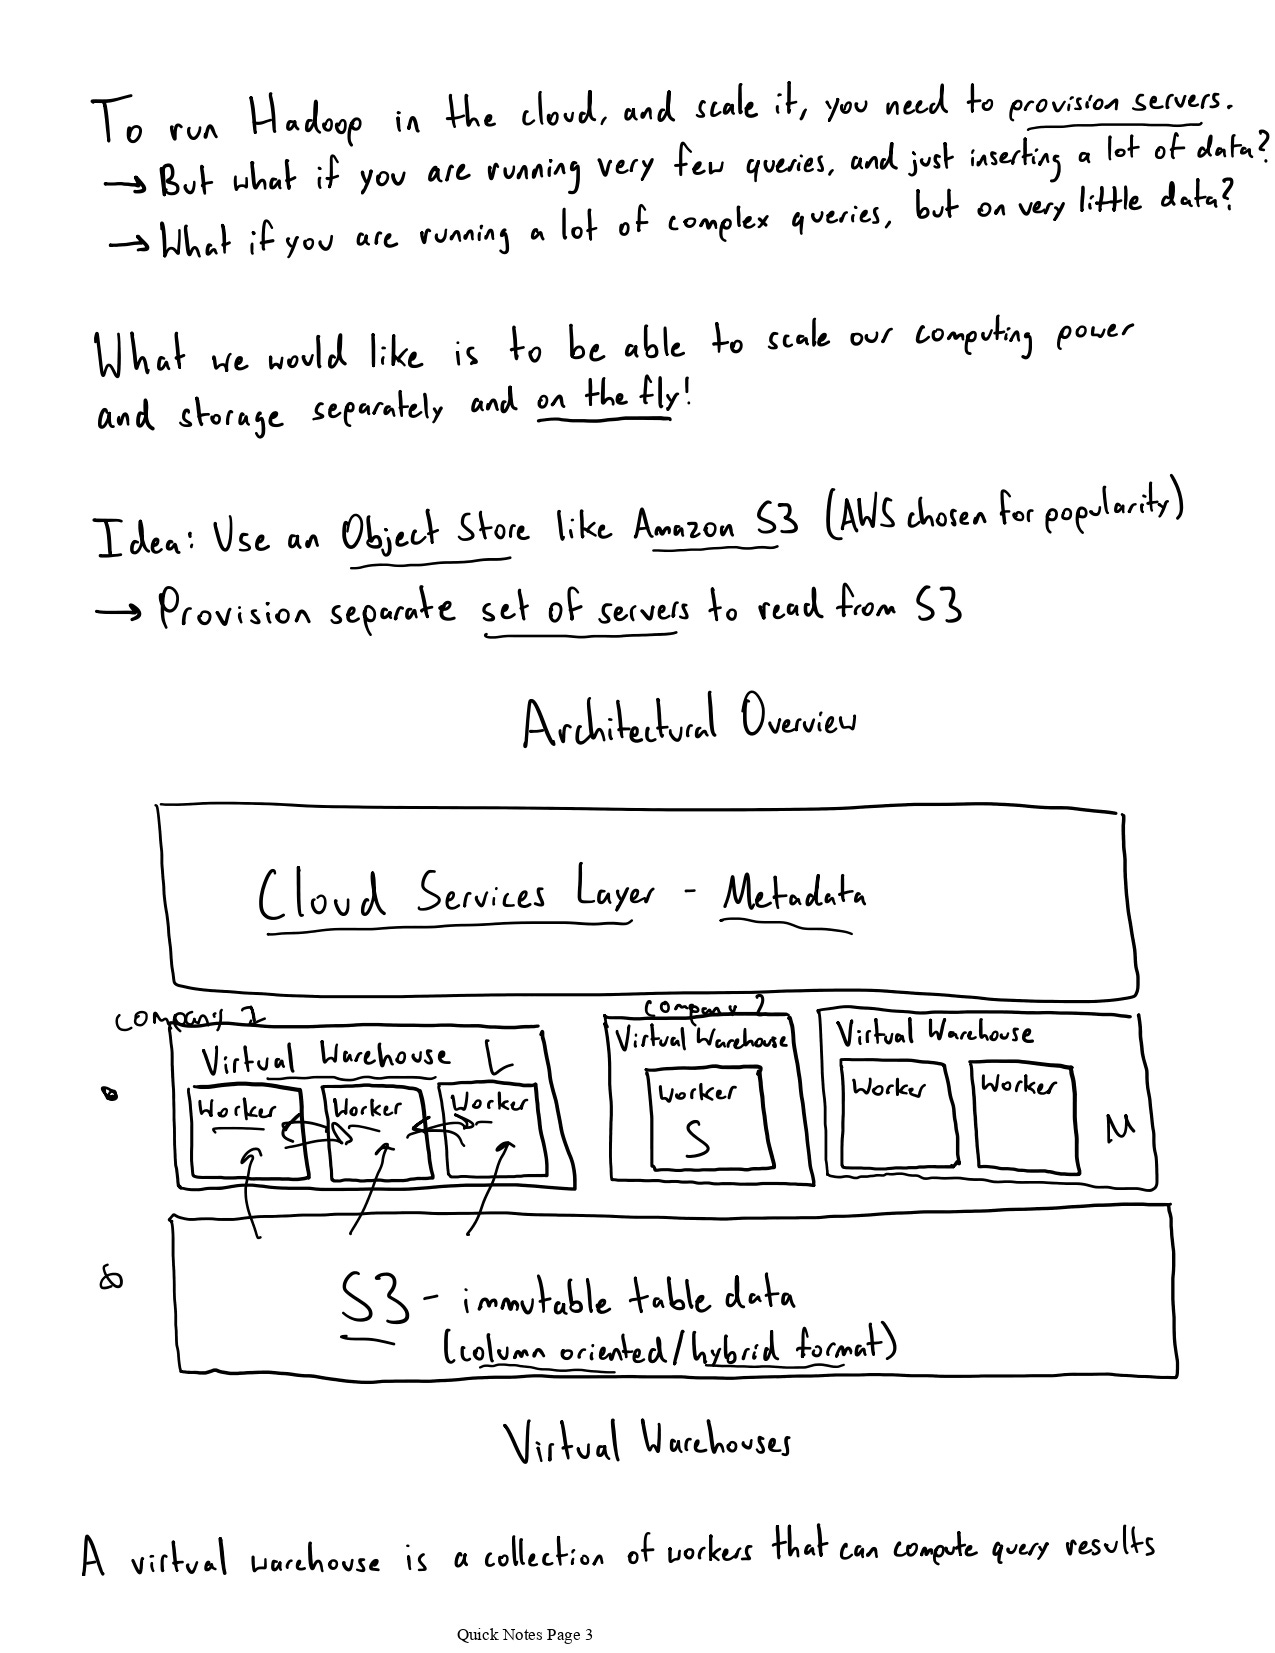 To run Hadoop in the cloud, and scale it, you need to provision servers.
→ But what if you are running very few queries, and just inserting a lot of data?
→ What if you are running a lot of complex queries, but on very little data?
What we would like is to be able to scale our computing power
and storage separately and on the fly!
Idea: Use an Object Store like Amazon S3 (AWS chosen for popularity)
→ Provision separate set of servers to read from S3
Architectural Overview
Cloud Services Layer - Metadata
Company 1
Virtual Warehouse L
Worker Worker Worker
Company 2
Virtual Warehouse
Worker
S
Virtual Warehouse
Worker Worker
M
S3 - immutable table data
(column oriented/hybrid format)
Virtual Warehouses
A virtual warehouse is a collection of workers that can compute query results
Quick Notes Page 3